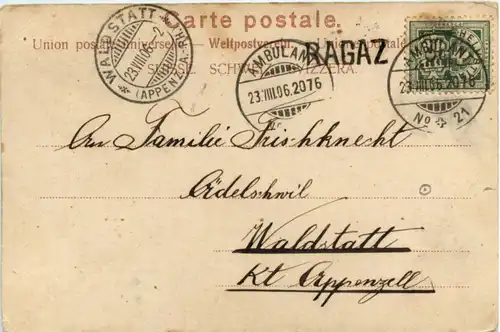 Carte postale.
Union postale universelle. — Weltpostverein. — Unione postale
SUISSE. SCHWEIZ. SVIZZERA.
WALDSTATT
23.VIII.06.-2
(APPENZ.A.RH.)
AMBULANT
23.VIII.06.2076
RAGAZ
AMBULANT
23.VIII.06.2076
No 21
An Familie Frischknecht
Edelschwil
Waldstatt
Kt Appenzell